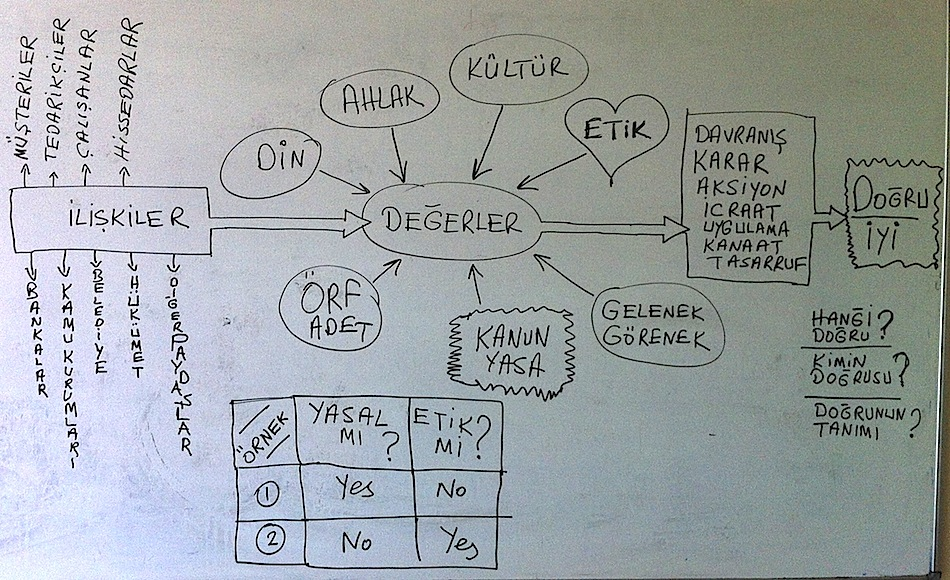 MÜŞTERİLER
TEDARİKÇİLER
ÇALIŞANLAR
HİSSEDARLAR
İLİŞKİLER
BANKALAR
KAMU KURUMLARI
BELEDİYE
HÜKÜMET
DİĞER PAYDAŞLAR
DİN
AHLAK
KÜLTÜR
ETİK
DEĞERLER
ÖRF
ADET
KANUN
YASA
GELENEK
GÖRENEK
DAVRANIŞ
KARAR
AKSİYON
İCRAAT
UYGULAMA
KANAAT
TASARRUF
DOĞRU
İYİ
HANGİ
DOĞRU?
KİMİN
DOĞRUSU?
DOĞRUNUN
TANIMI?
ÖRNEK
YASAL
MI?
ETİK
Mİ?
1 Yes No
2 No Yes